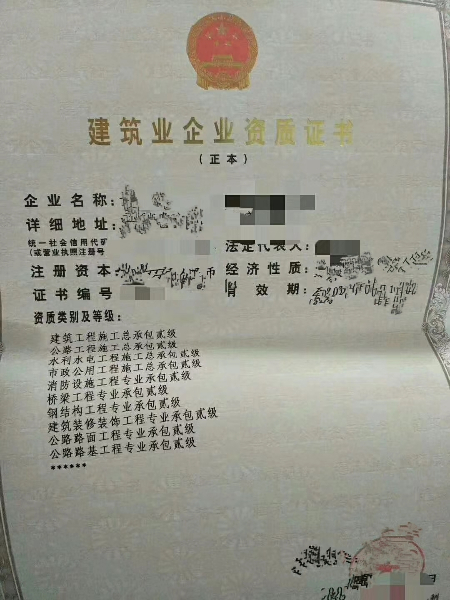 建筑业企业资质证书
(正本)
企业名称:
详细地址:
统一社会信用代码
(或营业执照注册号
法定代表人:
注册资本: 币
经济性质:
证书编号
有效期:
资质类别及等级:
建筑工程施工总承包贰级
公路工程施工总承包贰级
水利水电工程施工总承包贰级
市政公用工程施工总承包贰级
消防设施工程专业承包贰级
桥梁工程专业承包贰级
钢结构工程专业承包贰级
建筑装修装饰工程专业承包贰级
公路路面工程专业承包贰级
公路路基工程专业承包贰级
******